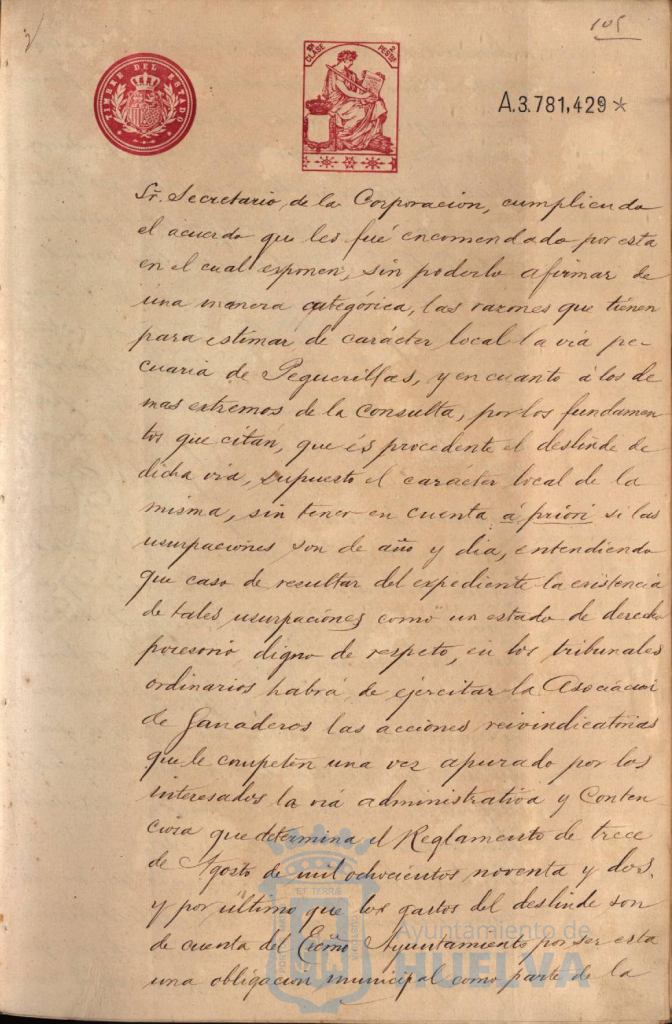 105
TIMBRE DEL ESTADO
CLASE
PESTAS
A.3.781,429*
Sr. Secretario, de la Corporación, cumpliendo
el acuerdo que les fué encomendado por esta
en el cual exponen, sin poderlo afirmar de
una manera categórica, las razones que tienen
para estimar de carácter local la via pe-
cuaria de Peguerillas, y en cuanto á los de
mas extremos de la consulta, por los fundamen
tos que citan, que és procedente el deslinde de
dicha via, supuesto el carácter local de la
misma, sin tener en cuenta á priori si las
usurpaciones son de año y dia, entendiendo
que caso de resultar del expediente la existencia
de tales usurpaciones como un estado de derecho
posesorio digno de respeto, en los tribunales
ordinarios habrá de ejercitar la Asociacion
de Ganaderos las acciones reivindicatorias
que le competen una vez apurado por los
interesados la via administrativa y Conten
ciosa que determina el Reglamento de trece
de Agosto de mil ochocientos noventa y dos,
y por último que los gastos del deslinde son
de cuenta del Excmo Ayuntamiento por ser esta
una obligacion municipal como parte de la
Ayuntamiento de
HUELVA